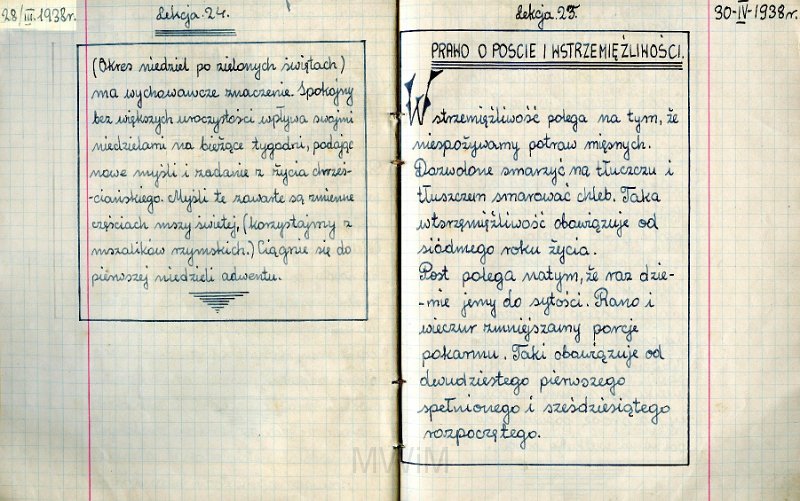 28/III.1938r.
Lekcja 24.
(Okres niedziel po zielonych świętach)
ma wychowawcze znaczenie. Spokojny
bez większych uroczystości wpływa swojmi
niedzielami na bieżące tygodni, podając
nowe myśli i zadanie z życia chrześ-
-ciańskiego. Myśli te zawarte są zmienne
częściach mszy świetej, (korzystajmy z
mszalików rzymskich.) Ciągnie się do
pierwszej niedzieli adwentu.
Lekcja 25.
30-IV-1938r.
PRAWO O POSCIE I WSTRZEMIĘŹLIWOŚCI.
Wstrzemięźliwość polega na tym, że
niespożywamy potraw mięsnych.
Dozwolone smarzyć na tłuczczu i
tłuszczem smarować chleb. Taka
wtsrzęmięźliwość obawiązuje od
siódmego roku życia.
Post polega natym, że raz dzie-
-mie jemy do sytości. Rano i
wieczur zmniejszamy porcje
pokarmu. Taki obawiązuje od
dwudziestego pierwszego
spełnionego i sześdziesiątego
rozpoczętego.
MWiM